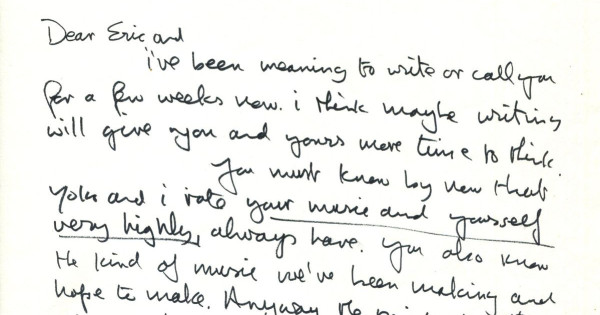 Dear Eric and
i've been meaning to write or call you
for a few weeks now. i think maybe writing
will give you and yours more time to think.
You must know by now that
Yoko and i rate your music and yourself
very highly, always have. You also know
the kind of music we've been making and
hope to make. Anyway the